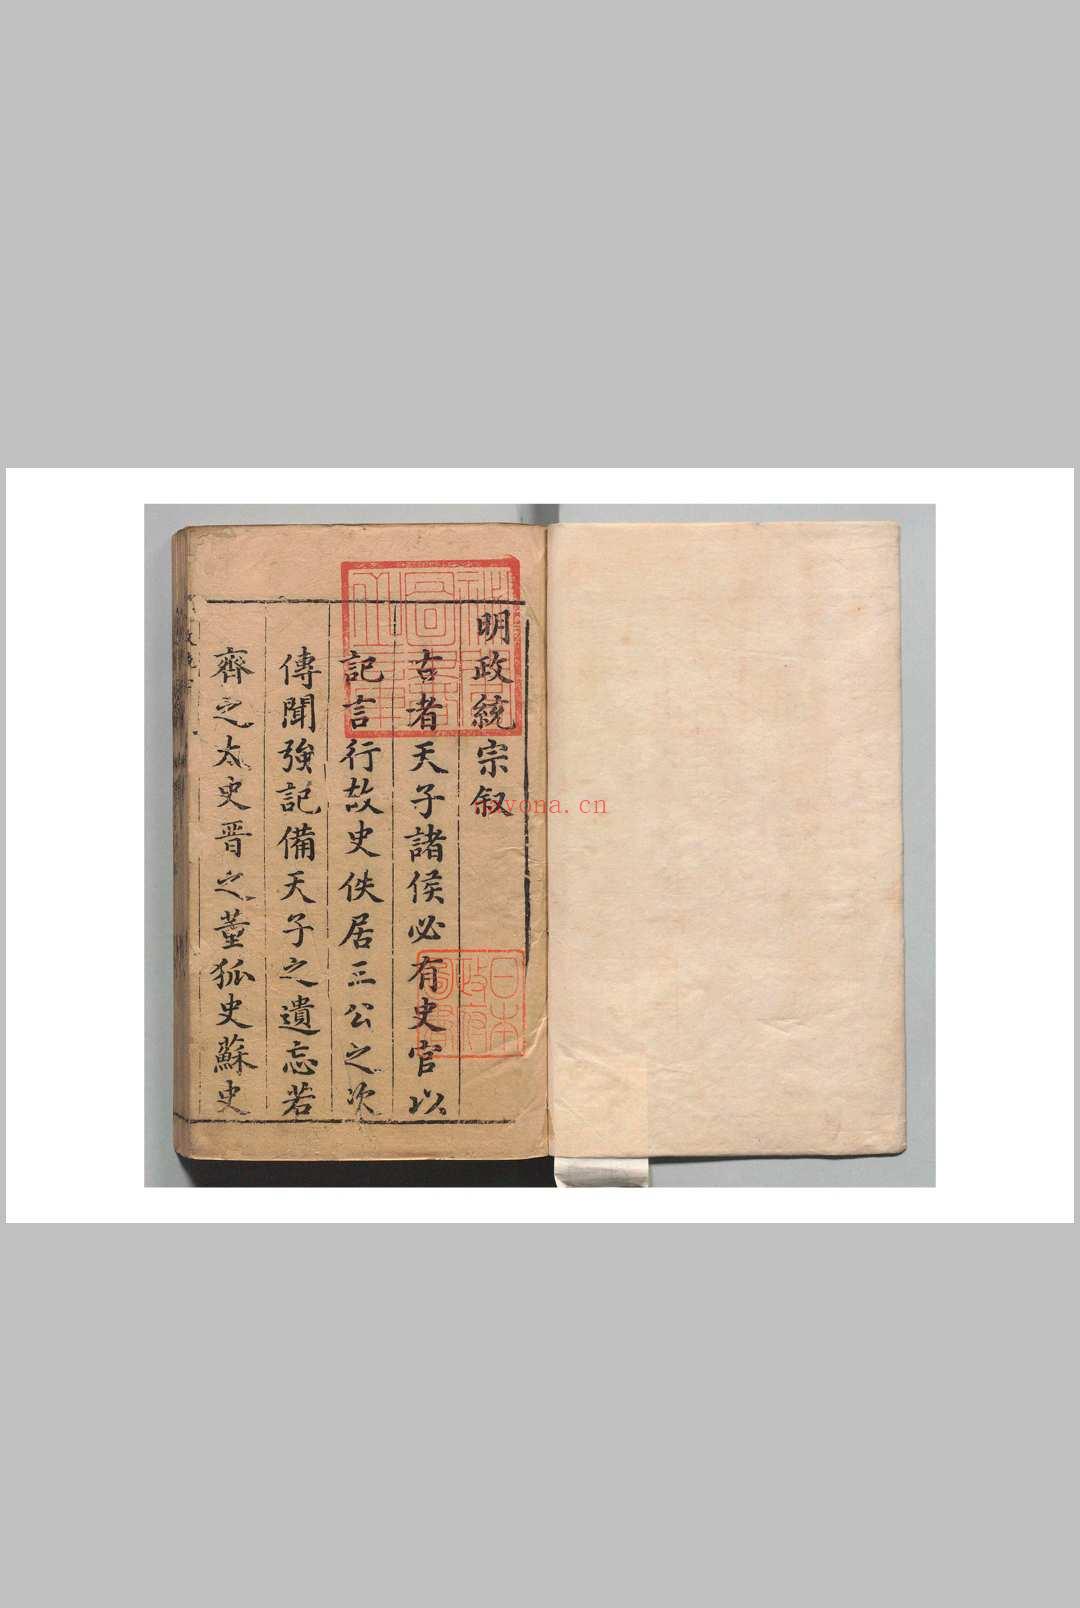 明政統宗叙
古者天子諸侯必有史官以
記言行故史佚居三公之次
傳聞強記備天子之遺忘若
齊之太史晋之董狐史蘇史
日本
政府
圖書
nayona.cn